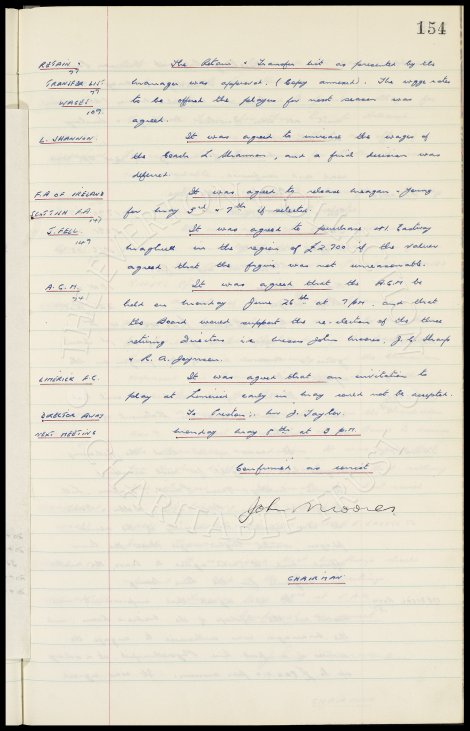 154
RETAIN & The Retain & Transfer list as presented by the
TRANSFER LIST manager was approved. (Copy annexed). The wage rates
WAGES to be offered the players for next season was
agreed.
L. SHANNON. It was agreed to increase the wages of
the Coach L. Shannon, and a final decision was
deferred.
F.A OF IRELAND It was agreed to release Meagan & Young
SCOTTISH F.A for May 3rd & 7th if selected.
J. FELL. It was agreed to purchase 41. Eastway
Maghull in the region of £2.700 if the valuer
agreed that the figure was not unreasonable.
A.G.M. It was agreed that the A.G.M be
held on Monday June 26th at 7 P.M. and that
the Board would support the re-election of the three
retiring Directors i.e. Messrs John Moores, J. C. Sharp
& R. A. Joynson.
LIMERICK F.C. It was agreed that an invitation to
play at Limerick early in May could not be accepted.
DIRECTOR AWAY To Preston:- Mr J. Taylor.
NEXT MEETING Monday May 8th at 3 P.M.
Confirmed as correct
John Moores.
CHAIRMAN
CHARITABLE TRUST